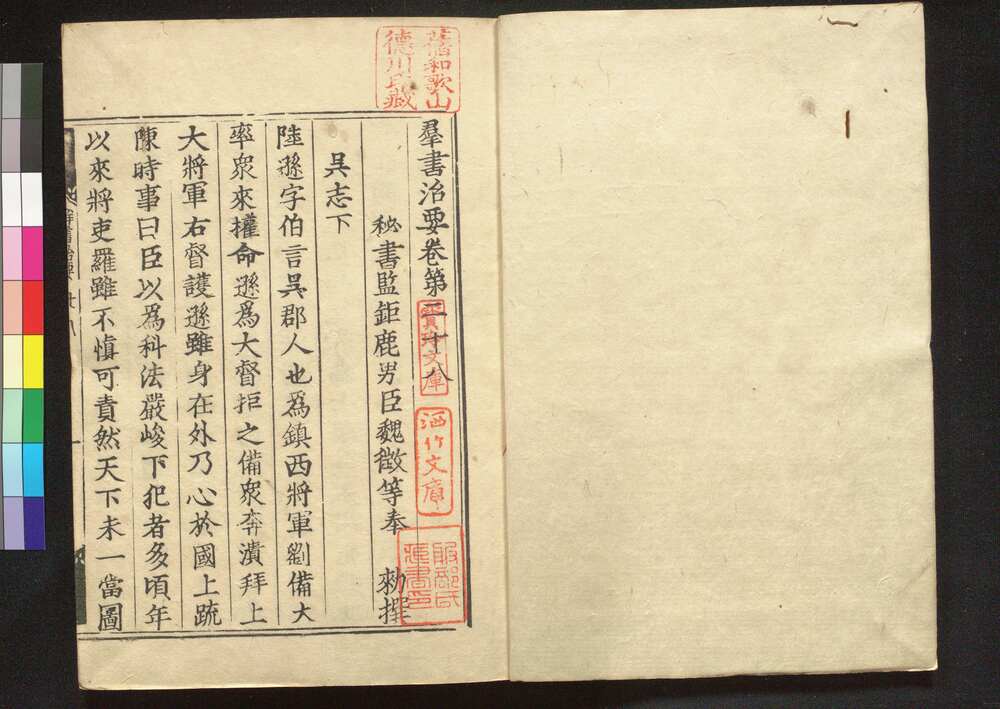 羣書治要卷第二十八
秘書監鉅鹿男臣魏徵等奉　勑撰
吳志下
陸遜字伯言吳郡人也爲鎮西將軍劉備大
率衆來權命遜爲大督拒之備衆奔潰拜上
大將軍右督護遜雖身在外乃心於國上疏
陳時事曰臣以爲科法嚴峻下犯者多頃年
以來將吏羅雖不慎可責然天下未一當圖
舊和歌山
德川氏藏
寶玲文庫
洒竹文庫
服部氏